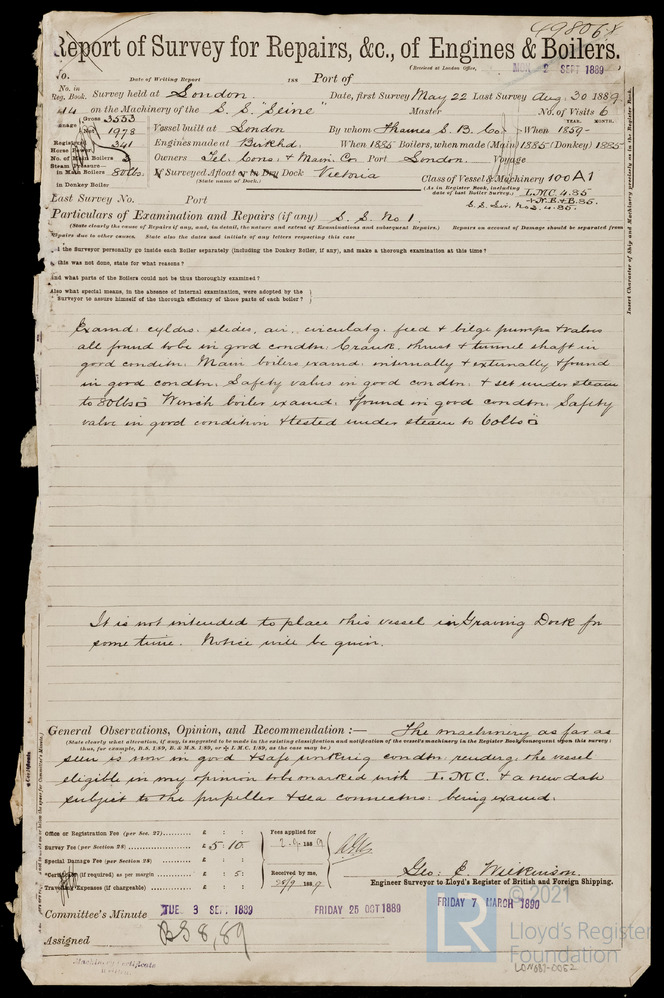 49806
Report of Survey for Repairs, &c., of Engines & Boilers.
(Received at London Office, MON. 2 SEPT 1889)
No. Date of Writing Report 188 Port of
No. in Reg. Book. Survey held at London Date, first Survey May 22 Last Survey Aug. 30 1889
14 on the Machinery of the S.S. "Seine" Master No. of Visits 6
Tonnage Gross 3553 Vessel built at London By whom Thames S. B. Co. When 1859
YEAR. MONTH.
Net 1978 Engines made at Birkhd When 1885 Boilers, when made (Main) 1885 (Donkey) 1885
Registered Horse Power 341 Owners Tel. Cons. & Main. Co Port London Voyage
No. of Main Boilers 3
Steam Pressure in Main Boilers 80lbs. If Surveyed Afloat or in Dry Dock Victoria Class of Vessel & Machinery 100A1
(State name of Dock.) (As in Register Book, including date of last Boiler Survey.) L.M.C. 4.85
in Donkey Boiler +N.E.+B.85.
S.S. Lon. No 2. 4.85.
Last Survey No. Port
Particulars of Examination and Repairs (if any) S.S. No 1.
(State clearly the cause of Repairs if any, and, in detail, the nature and extent of Examinations and subsequent Repairs.) Repairs on account of Damage should be separated from
Repairs due to other causes. State also the dates and initials of any letters respecting this case
Did the Surveyor personally go inside each Boiler separately (including the Donkey Boiler, if any), and make a thorough examination at this time?
If this was not done, state for what reasons?
And what parts of the Boilers could not be thus thoroughly examined?
Also what special means, in the absence of internal examination, were adopted by the
Surveyor to assure himself of the thorough efficiency of those parts of each boiler?
Examd: cyldrs: slides, air, circulatg. feed & bilge pumps & valves
all found to be in good condtn: Crank, thrust & tunnel shaft in
good conditn: Main boilers examd: internally & externally & found
in good condtn: Safety valves in good condtn: & set under steam
to 80lbs□ Winch boiler examd: & found in good condtn: Safety
valve in good condition & tested under steam to 60lbs□
It is not intended to place this vessel in Graving Dock for
some time. Notice will be given.
General Observations, Opinion, and Recommendation :— The machinery as far as
(State clearly what alteration, if any, is suggested to be made in the existing classification and notification of the vessel's machinery in the Register Book, consequent upon this survey:
thus, for example, B.S. 1/89, B. & M.S. 1/89, or ✠ L.M.C. 1/89, as the case may be.)
seen is now in good & safe working condtn: renderg: the vessel
eligible in my opinion to be marked with L.M.C. & a new date
subject to the propeller & sea connectns: being examd:
Office or Registration Fee (per Sec. 27) £ : : Fees applied for
Survey Fee (per Section 28) £ 5 : 10 : 2.9. 1889
Special Damage Fee (per Section 28) £ : :
*Certificate (if required) as per margin £ : 5 : Received by me,
Travelling Expenses (if chargeable) £ : : 25/9 1889
Geo: E. Wilkinson
Engineer Surveyor to Lloyd's Register of British and Foreign Shipping.
Committee's Minute TUE. 3 SEP. 1889 FRIDAY 25 OCT 1889 FRIDAY 7 MARCH 1890
Assigned BS 8,89
Machinery Certificate
Written
Insert Character of Ship and Machinery precisely as in the Register Book.
© 2021
LR
Lloyd's Register
Foundation
LON687-0052